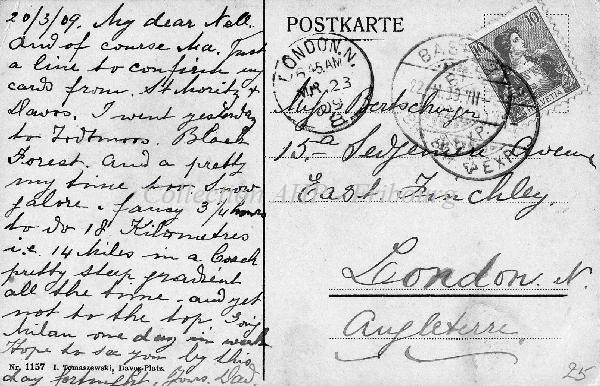 20/3/09. My dear Nell.
And of course Ma. Just
a line to confirm my
cards from St Moritz &
Davos. I went yesterday
to Todtmoos. Black
Forest. And a pretty
my time too. Snow
galore. fancy 3/4 hours
to do 18 Kilometres
i.e. 14 miles in a Coach
pretty steep gradient
all the time. and yet
not to the top. Going
Milan one day in week
Hope to see you by this
day fortnight. Yours. Dad.
Nr. 1157 I. Tomaszewski, Davos-Platz.
POSTKARTE
LONDON.N.
5.45AM
MR 23
09
BAS
EXP.
10
HELVETIA
Miss Bertschinger
15a Sedgemere Avenue
East Finchley.
London. N.
Angleterre.
25
Collection AEDA Fribourg